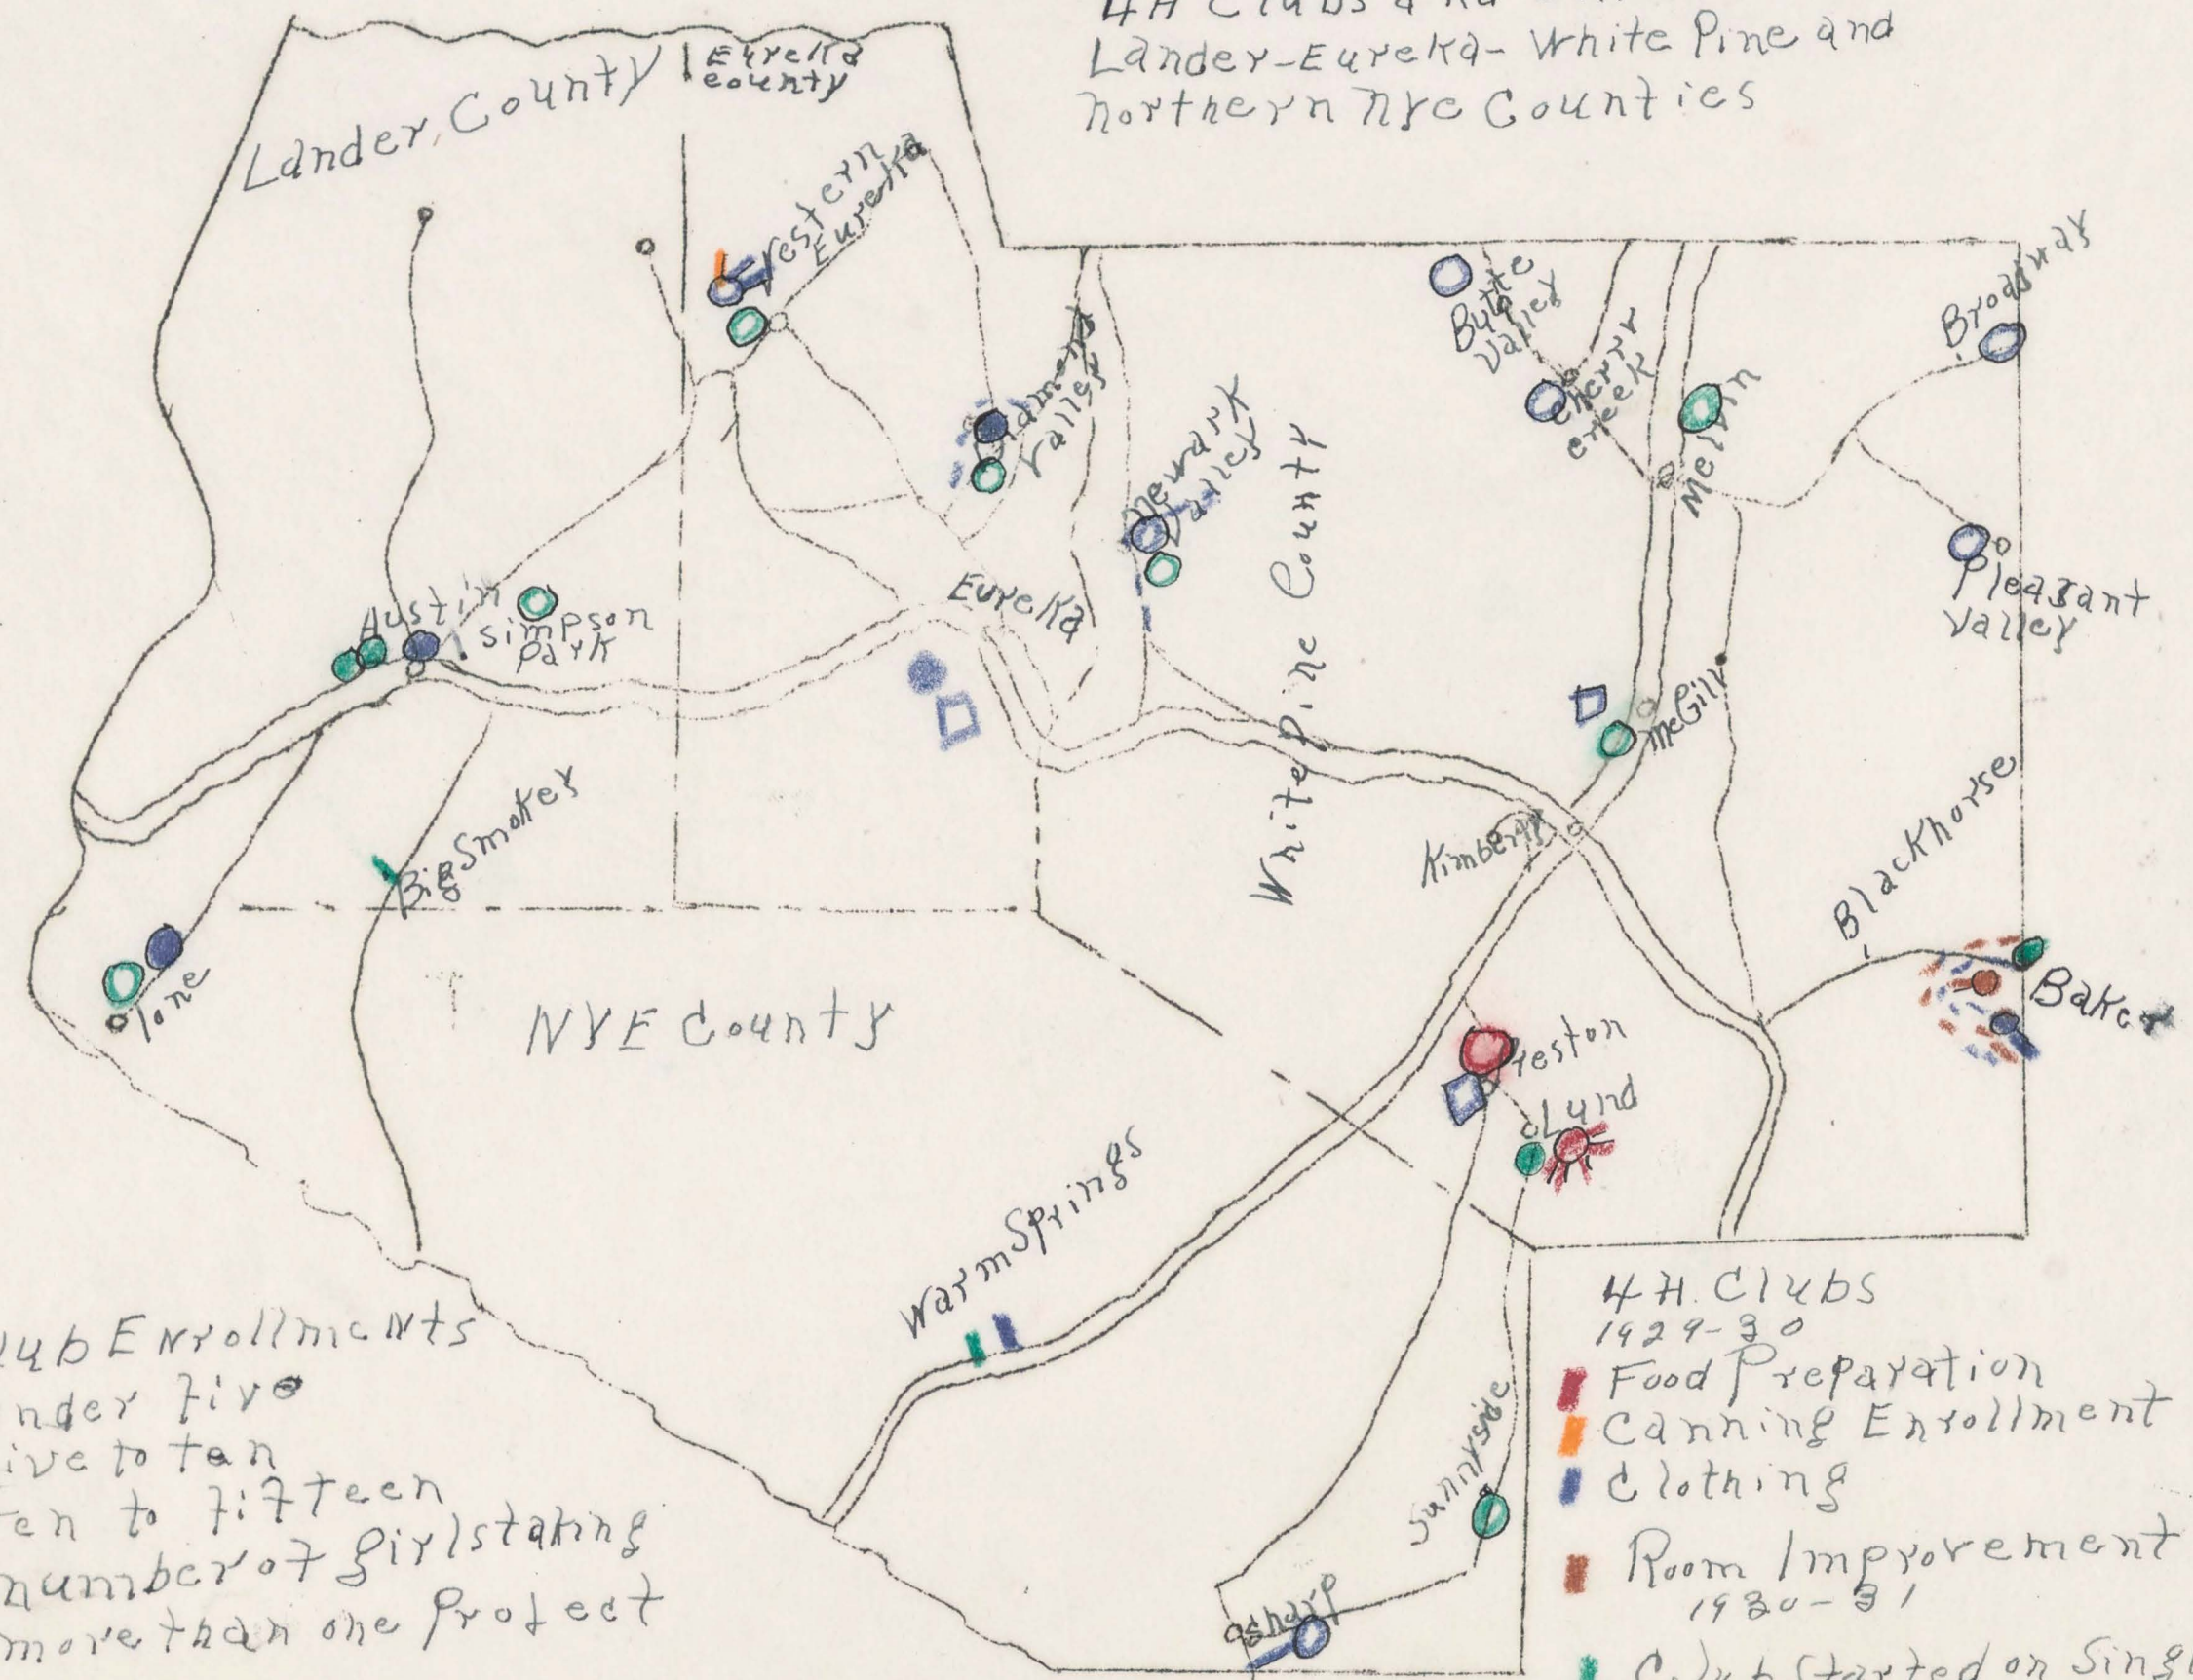 4H Clubs and
Lander-Eureka- White Pine and
northern Nye Counties
Lander County
Eureka
county
Western
Eureka
Diamond
Valley
Newark
Valley
Butte
Valley
Cherry
creek
Melvin
Broadway
Pleasant
Valley
White Pine County
Austin
Simpson
Park
Eureka
McGill
Kimberly
Big Smokey
Blackhorse
Baker
Ione
NYE County
Preston
Lund
Warm Springs
Sunnyside
Sharp
lub Enrollments
nder Five
ive to ten
en to Fifteen
number of girls taking
more than one Project
4 H. Clubs
1929-30
Food Preparation
Canning Enrollment
Clothing
Room Improvement
1930-31
Club Started on Sing